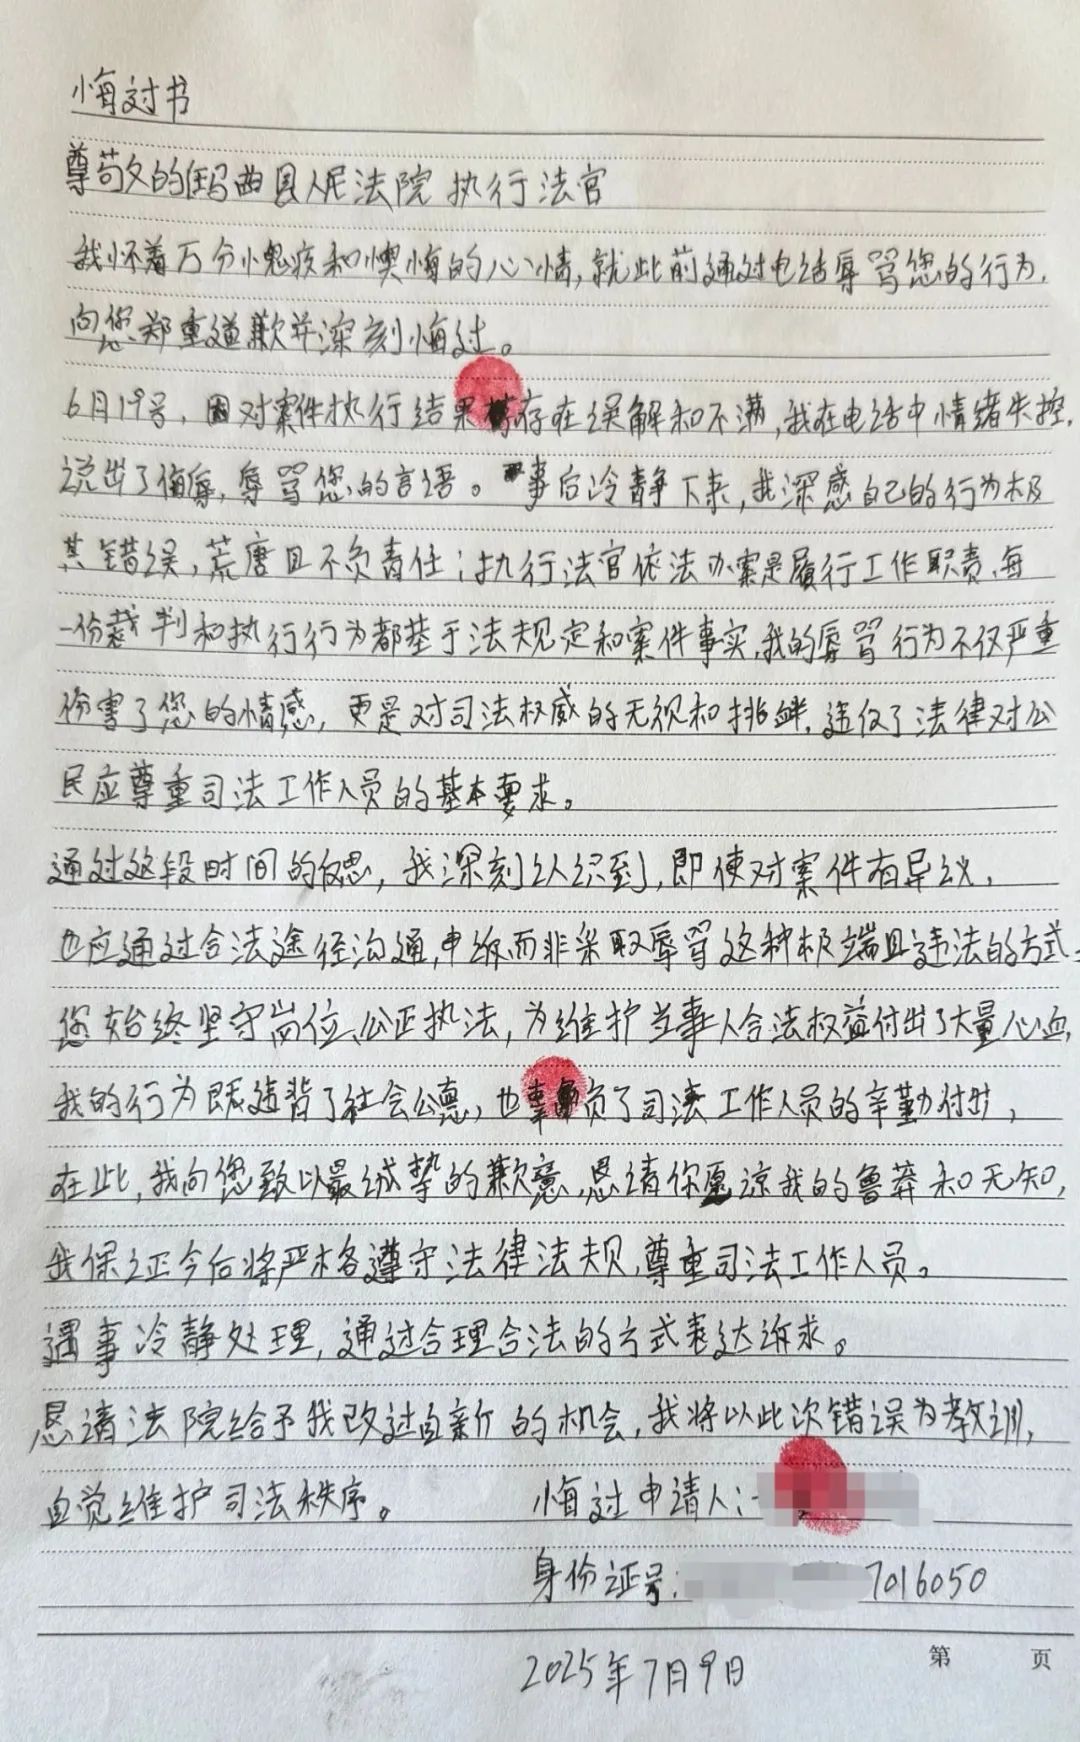 悔过书
尊敬的玛曲县人民法院执行法官
我怀着万分愧疚和懊悔的心情,就此前通过电话辱骂您的行为,
向您郑重道歉并深刻悔过。
6月19号,因对案件执行结果存在误解和不满,我在电话中情绪失控,
说出了侮辱,辱骂您的言语。事后冷静下来,我深感自己的行为极
其错误,荒唐且不负责任;执行法官依法办案是履行工作职责,每
一份裁判和执行行为都基于法规定和案件事实,我的辱骂行为不仅严重
伤害了您的情感,更是对司法权威的无视和挑衅,违反了法律对公
民应尊重司法工作人员的基本要求。
通过这段时间的反思,我深刻认识到,即使对案件有异议,
也应通过合法途径沟通,申诉而非采取辱骂这种极端且违法的方式。
您始终坚守岗位、公正执法,为维护当事人合法权益付出了大量心血,
我的行为既违背了社会公德,也辜负了司法工作人员的辛勤付出,
在此,我向您致以最诚挚的歉意,恳请你愿谅我的鲁莽和无知,
我保证今后将严格遵守法律法规,尊重司法工作人员。
遇事冷静处理,通过合理合法的方式表达诉求。
恳请法院给予我改过自新的机会,我将以此次错误为教训,
自觉维护司法秩序。 悔过申请人:
身份证号: 7016050
第 页
2025年7月9日